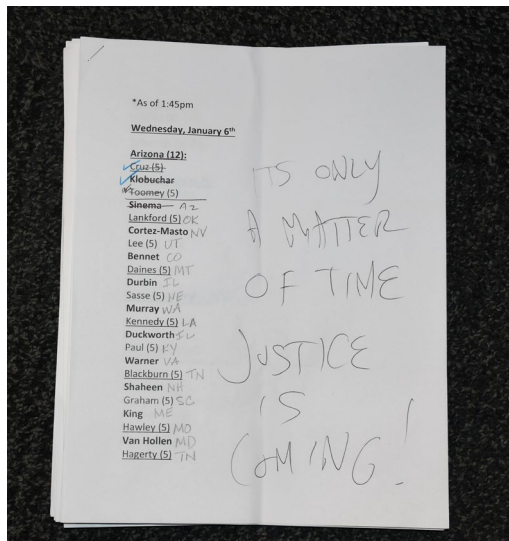 *As of 1:45pm
Wednesday, January 6th
Arizona (12):
Cruz (5)
Klobuchar
*Toomey (5)
Sinema AZ
Lankford (5) OK
Cortez-Masto NV
Lee (5) UT
Bennet CO
Daines (5) MT
Durbin IL
Sasse (5) NE
Murray WA
Kennedy (5) LA
Duckworth IL
Paul (5) KY
Warner VA
Blackburn (5) TN
Shaheen NH
Graham (5) SC
King ME
Hawley (5) MO
Van Hollen MD
Hagerty (5) TN
ITS ONLY
A MATTER
OF TIME
JUSTICE
IS
COMING!